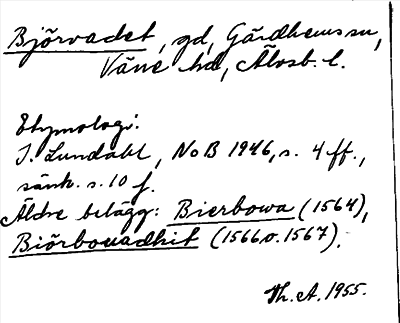 Björvadet, gd, Gärdhems sn,
Väne hd, Älvsb. l.
Etymologi:
I. Lundahl, NoB 1946, s. 4 ff.,
särsk. s. 10 f.
Äldre belägg: Bierbowa (1564),
Biörbouadhit (1566 o. 1567).
Th. A. 1955.